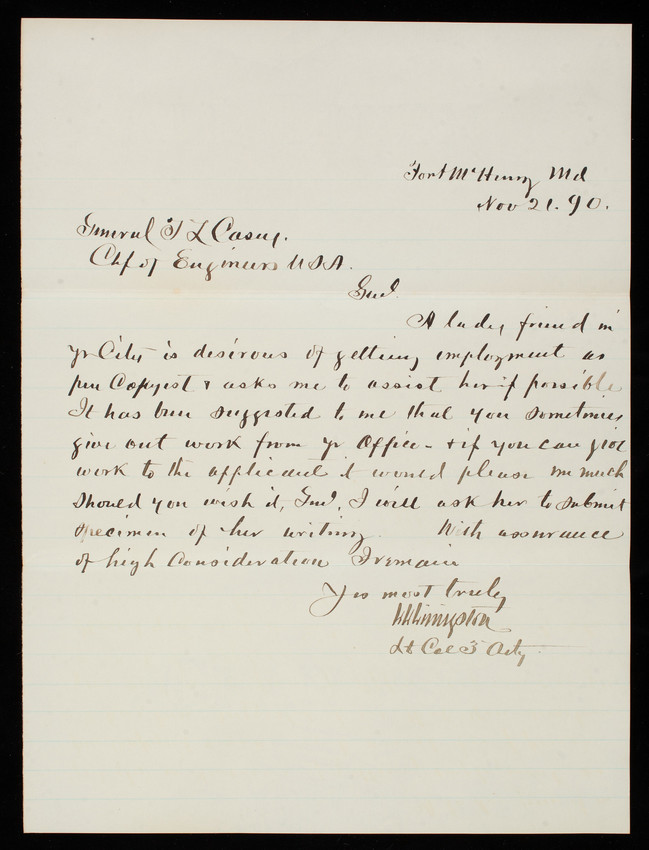 Fort McHenry Md
Nov 21. 90.
General T L Casey.
Chf of Engineers USA.
Genl.
A lady friend in
yr City is desirous of getting employment as
pen Copyist & asks me to assist her if possible
It has been suggested to me that you sometimes
give out work from yr Office - & if you can give
work to the applicant it would please me much
Should you wish it, Genl, I will ask her to submit
specimen of her writing. With assurance
of high Consideration I remain
Yrs most truly
Livingston
Lt Col 3d Arty